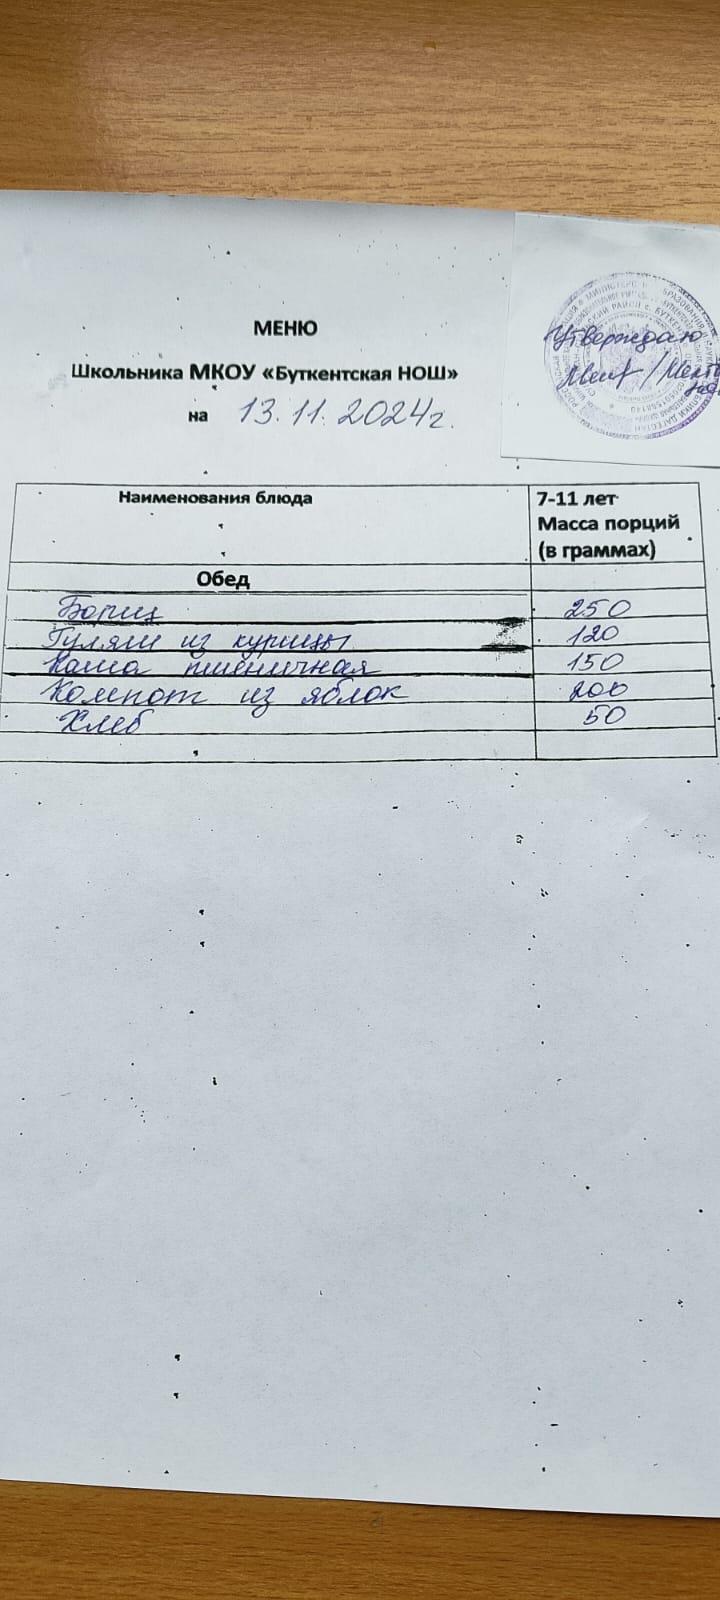 МЕНЮ
Школьника МКОУ «Буткентская НОШ»
на 13.11.2024г.
Утверждаю
Наименования блюда
7-11 лет
Масса порций
(в граммах)
Обед
Борщ 250
Гуляш из курицы 120
Каша пшеничная 150
Компот из яблок 200
Хлеб 50